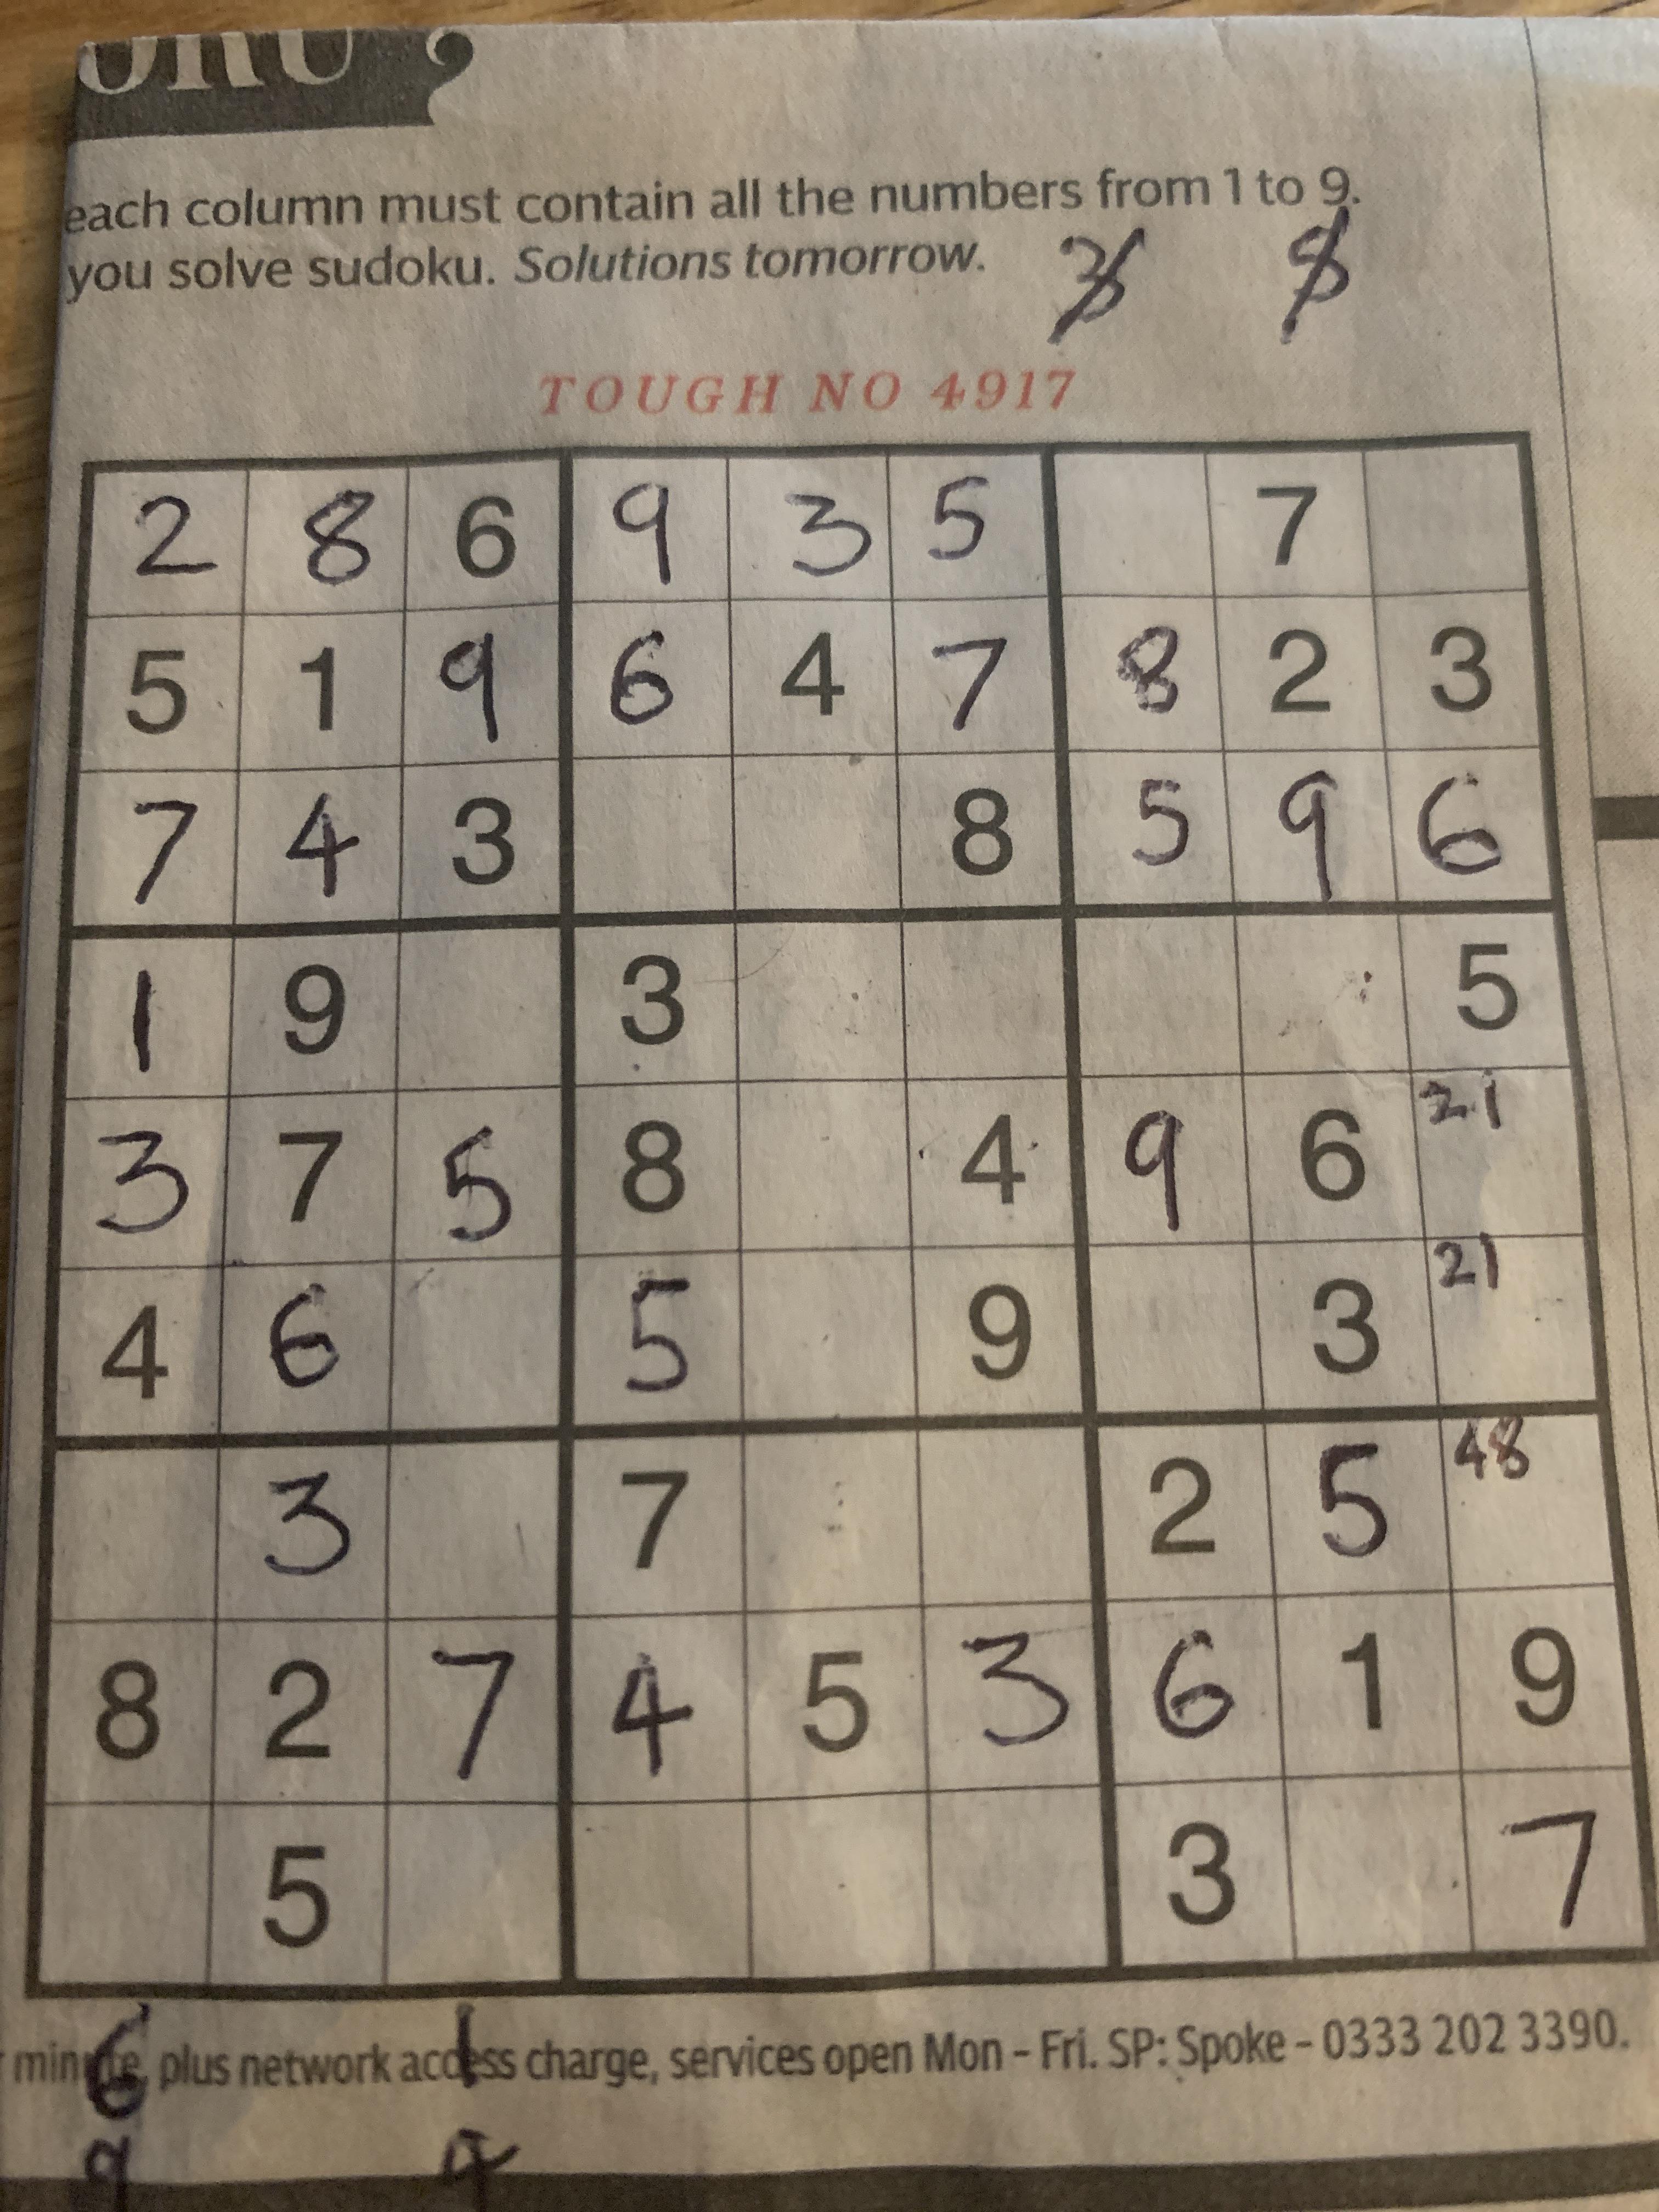 each column must contain all the numbers from 1 to 9.
you solve sudoku. Solutions tomorrow.
TOUGH NO 4917
2 8 6 9 3 5 7
5 1 9 6 4 7 8 2 3
7 4 3 8 5 9 6
1 9 3 5
3 7 5 8 4 9 6 21
4 6 5 9 3 21
3 7 2 5 48
8 2 7 4 5 3 6 1 9
5 3 7
minute, plus network access charge, services open Mon – Fri. SP: Spoke – 0333 202 3390.
6 1